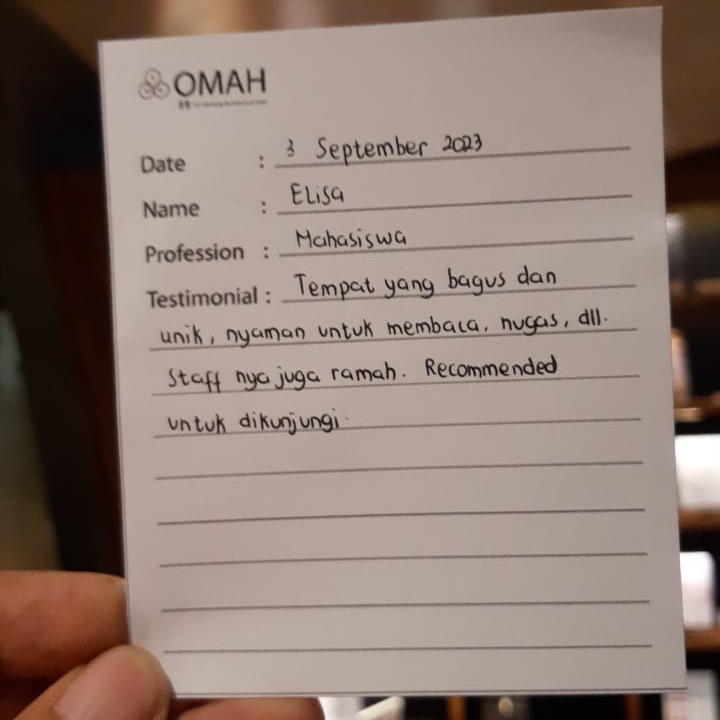 OMAH
Date : 3 September 2023
Name : Elisa
Profession : Mahasiswa
Testimonial : Tempat yang bagus dan
unik, nyaman untuk membaca, nugas, dll.
Staff nya juga ramah. Recommended
untuk dikunjungi.